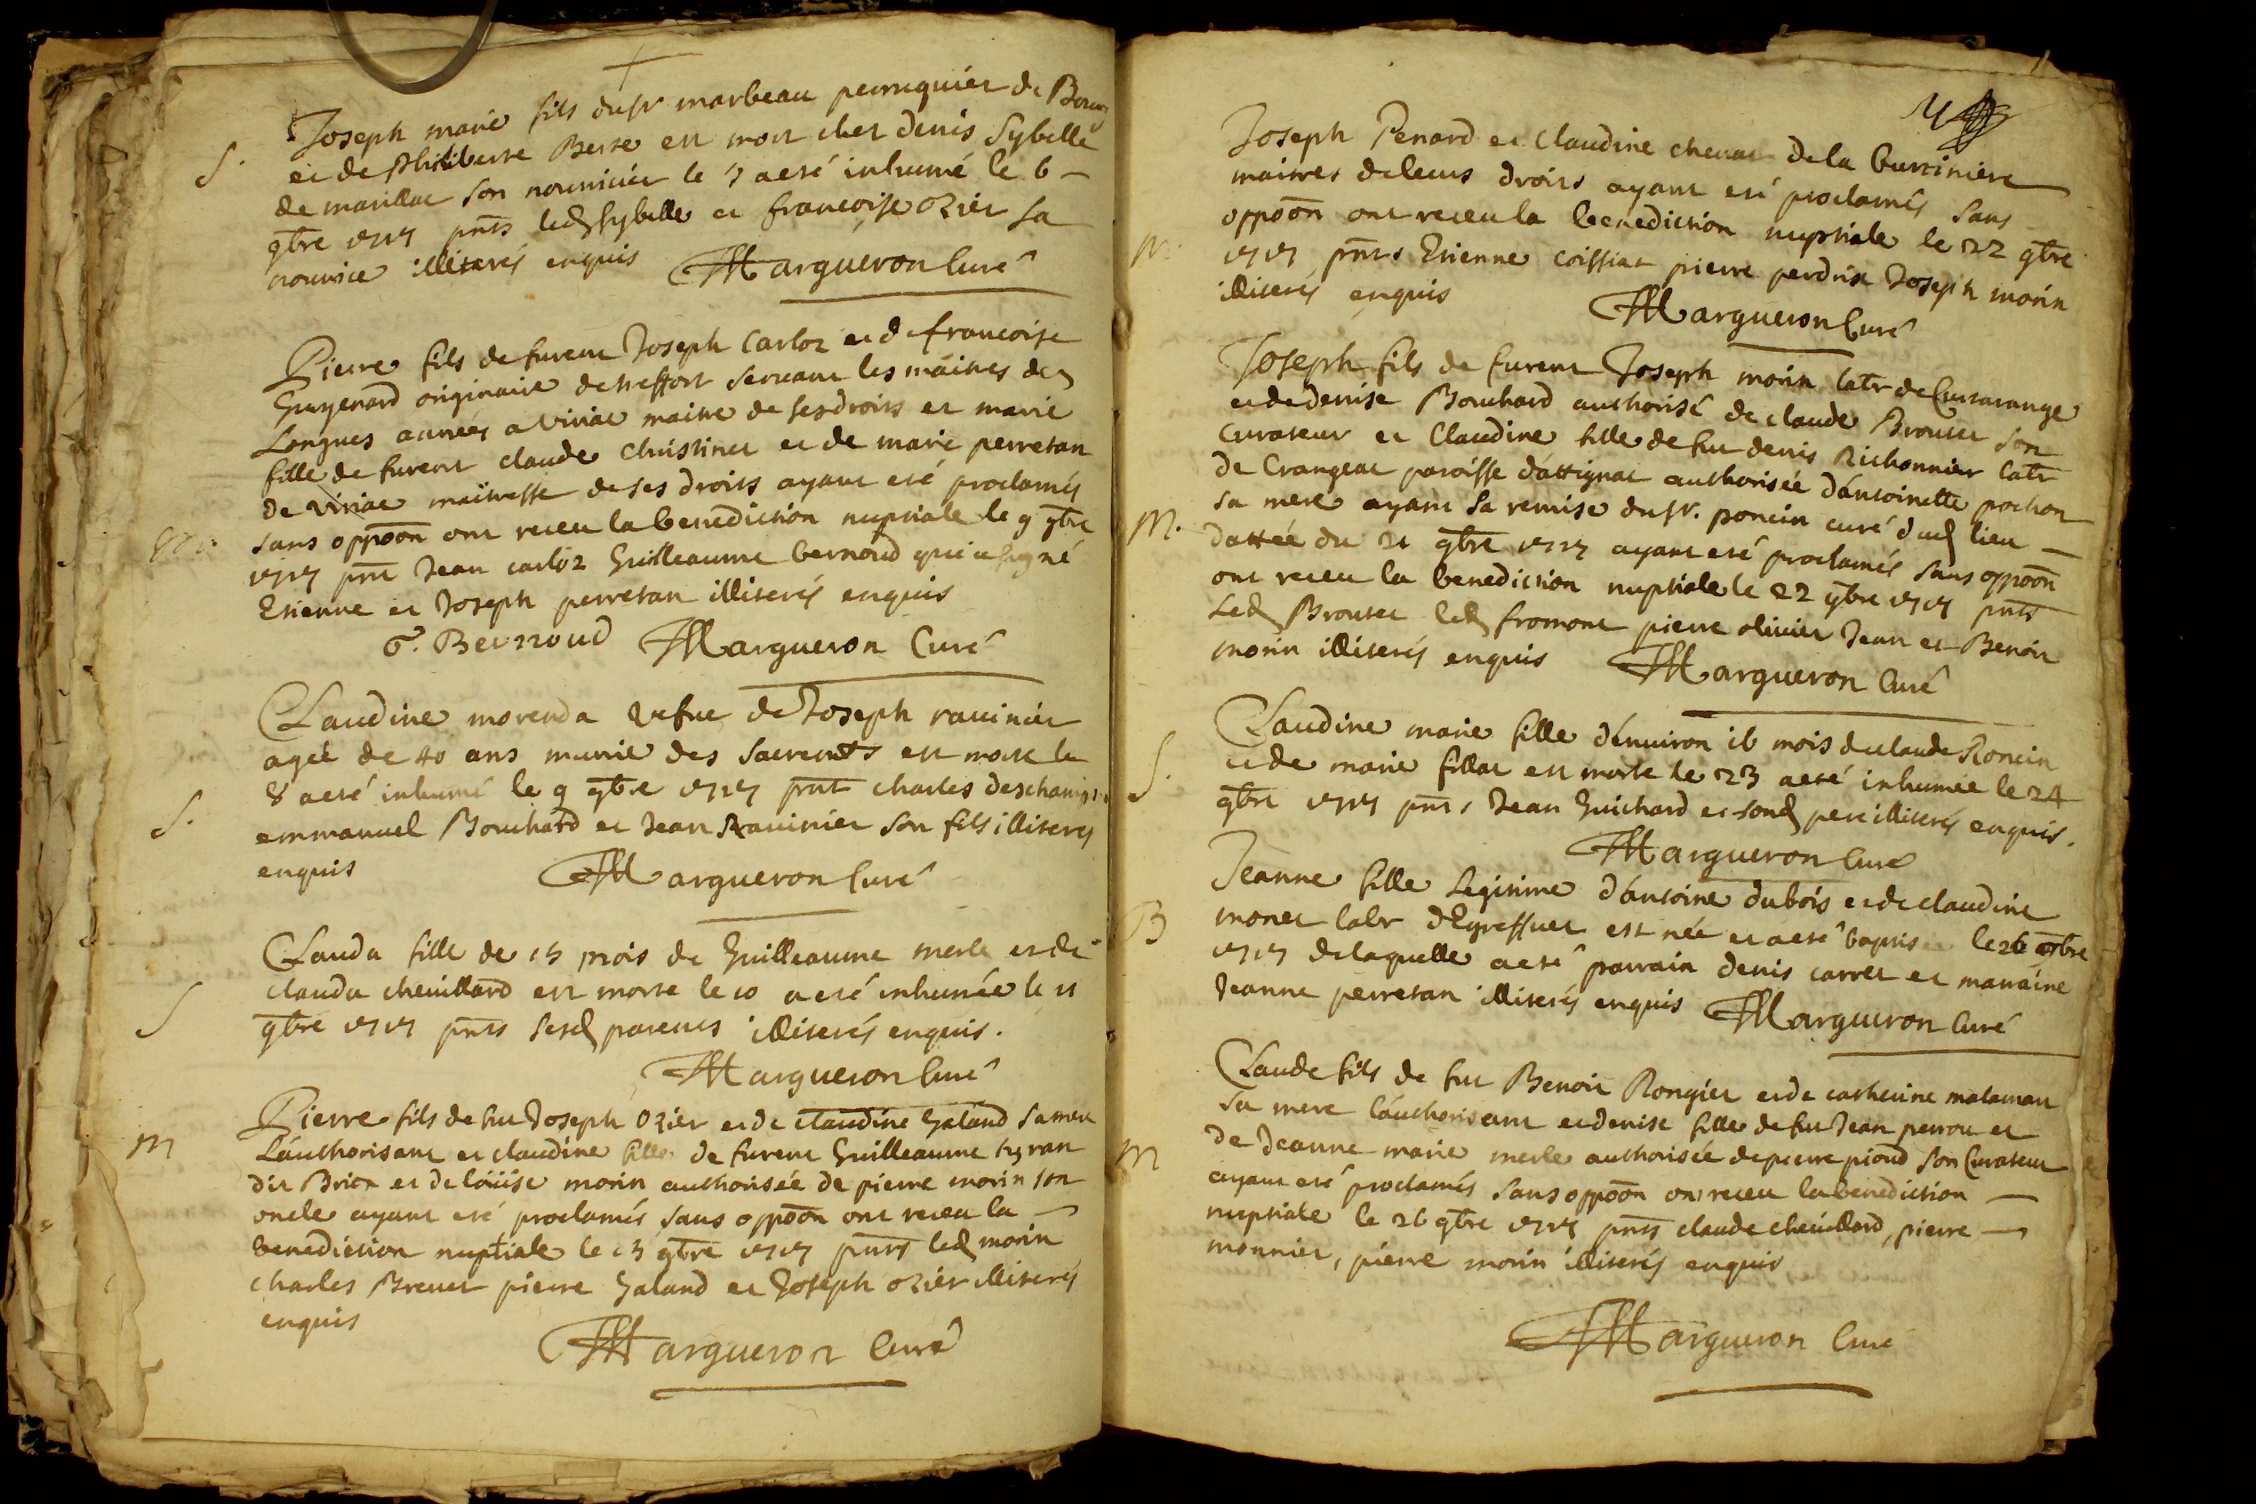 Joseph marie fils du sr marbeau perruquier de Bourg
S. et de philiberte Beste est mort chez denis Sybelle
de marillat son nourricier le 5 a eté inhumé le 6
9bre 1717 pnts led Sybelle et francoise ozier sa
nourrice illiterés enquis Margueron Curé
Pierre fils de furent Joseph Carloz et de francoise
Guyenard originaire de treffort servant les maitres des
Longues années a viriat maitre de ses droits et marie
fille de furent claude Christinet et de marie perretan
de viriat maitresse de ses droits ayant eté proclamés
sans oppoōn ont receu la benediction nuptiale le 9 9bre
1717 pnt Jean carloz Guilleaume bernoud qui a signé
Etienne et Joseph perretan illiterés enquis
G. Bernoud Margueron Curé
Claudine morenda vefue de Joseph rauinier
agée de 40 ans munie des sacrements est morte le
8 a eté inhumé le 9 9bre 1717 pnt charles deschamps
S. emmanuel Bouchard et Jean Rauinier son fils illiterés
enquis Margueron Curé
Clauda fille de 15 mois de Guilleaume merle et de
clauda cheuillard est morte le 10 a eté inhumée le 11
S 9bre 1717 pnts sesd parents illiterés enquis.
Margueron Curé
Pierre fils de fut Joseph Ozier et de claudine Galand sa mere
M L'authorisant et claudine fille de furent Guilleaume
dit Brion et de loüise morin authorisée de pierre morin son
oncle ayant eté proclamés sans oppoōn ont receu la
benediction nuptiale le 15 9bre 1717 pnts led morin
charles Breuet pierre Galand et Joseph ozier illiterés
enquis
Margueron Curé
Joseph Penard et Claudine de la burtiniere
maitres de leurs droits ayant eté proclamés sans
oppoōn ont receu la benediction nuptiale le 22 9bre
M. 1717 pnts Etienne coiffiat pierre perdrix Joseph morin
illiterés enquis Margueron Curé
Joseph fils de furent Joseph morin labr de Curtarange
et de denise Bouchard authorisé de claude Broutet son
Curateur et Claudine fille de fut denis Richonnier labr
de Crangeat paroisse d'attignat authorisée d'antoinette pochon
sa mere ayant sa remise du sr. poncin curé dud lieu
M. dattée du 21 9bre 1717 ayant eté proclamés sans oppoōn
ont receu la benediction nuptiale le 22 9bre 1717 pnts
led Broutet led fromont pierre oliuier Jean et Benoit
morin illiterés enquis Margueron Curé
Claudine marie fille d'enuiron 16 mois de claude Roncin
S. et de marie fillat est morte le 23 a eté inhumée le 24
9bre 1717 pnts Jean Guichard et sond pere illiterés enquis.
Margueron Curé
Jeanne fille legitime d'antoine dubois et de claudine
B monet labr d'Egreffuet est née et a eté baptisée le 26 9bre
1717 de laquelle a eté parrain denis carret et marraine
Jeanne perretan illiterés enquis Margueron Curé
Claude fils de fut Benoit Rongier et de catherine mataman
sa mere l'authorisant et denise fille de fut Jean perrou et
M de Jeanne marie merle authorisée de pierre pioud son Curateur
ayant eté proclamés sans oppoōn ont receu la benediction
nuptiale le 26 9bre 1717 pnts claude cheuillard, pierre
monnier, pierre morin illiterés enquis
Margueron Curé